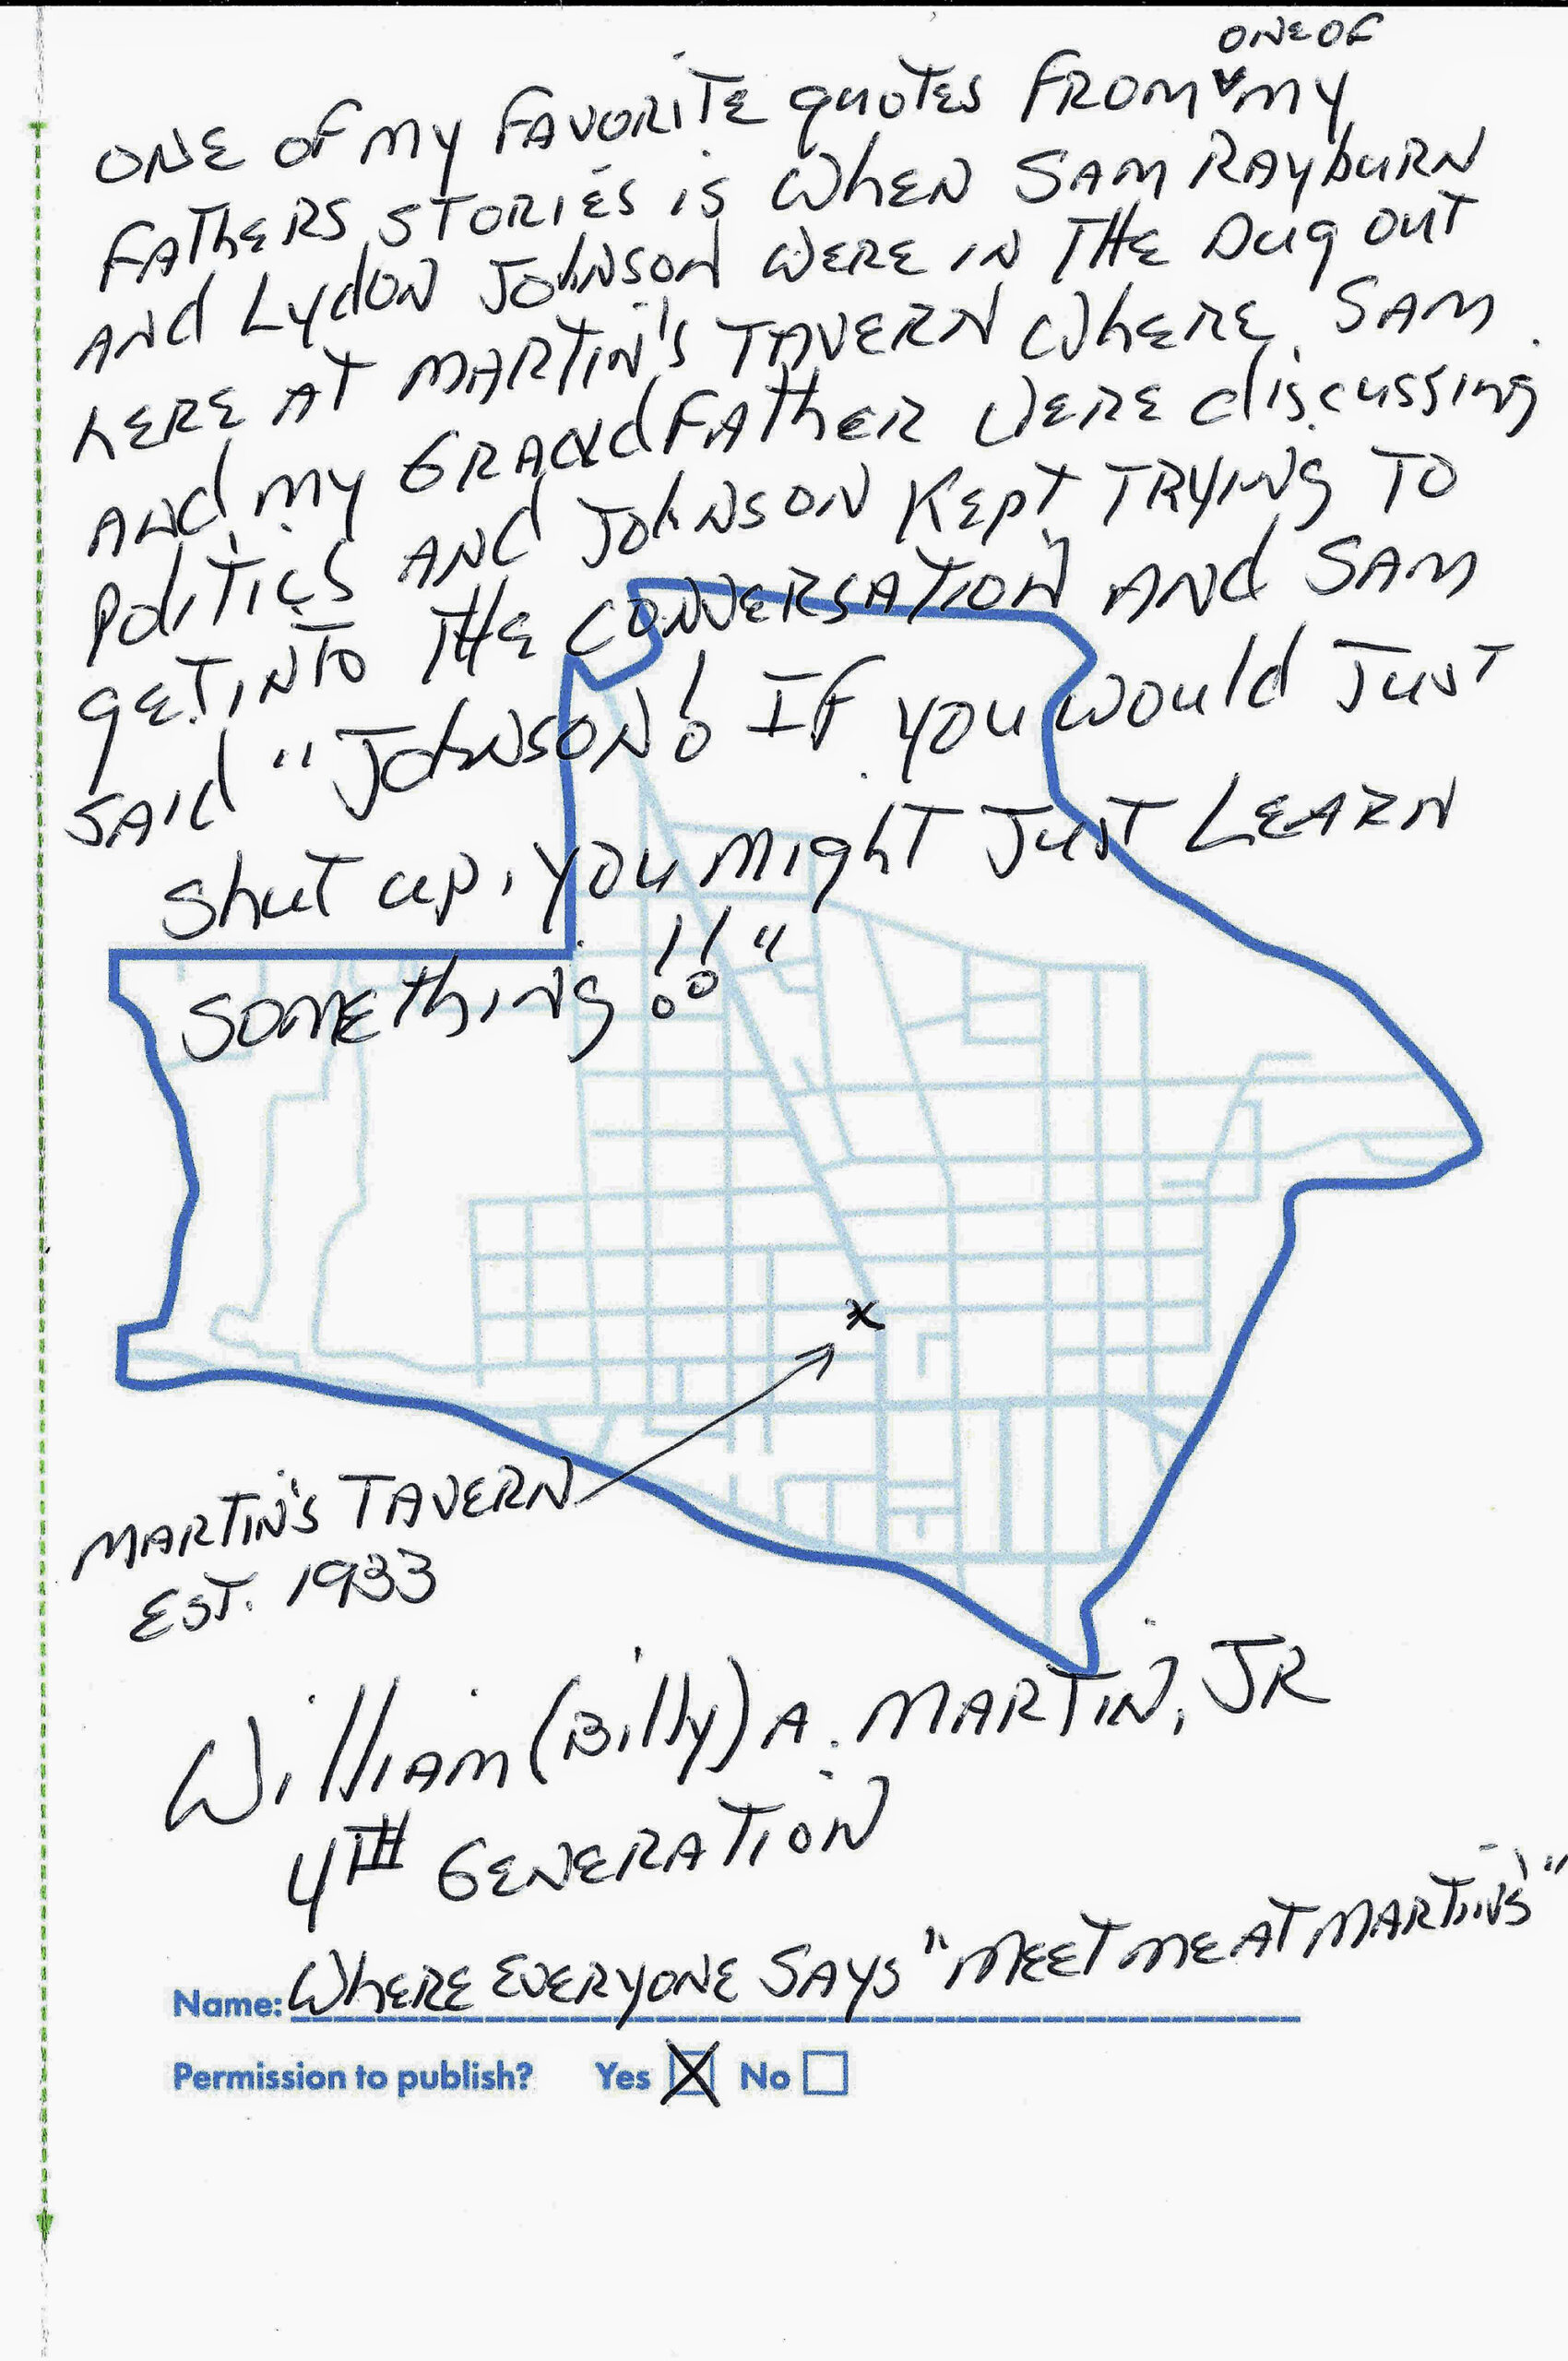 ONE OF
ONE OF MY FAVORITE quOTES FROM MY
FATHERS STORIES is WhEN SAM RAYbuRN
ANd LydON JOhNSON WERE IN THE Dug OuT
hERE AT MARTIN'S TAVERN WhERE SAM
ANd MY GRANdFATHER WERE discussing
POLITICS ANd JOhNSON KEPT TRYING TO
gET INTO THE CONVERSATION ANd SAM
SAid "JOhNSON! IF you would JusT
shuT up, you might JusT LEARN
SOMEThING!!"
MARTIN'S TAVERN
EST. 1933
William (Billy) A. MARTIN, JR
4TH GENERATION
Name: WhERE EVERYONE SAYS "MEET ME AT MARTIN'S"
Permission to publish? Yes X No